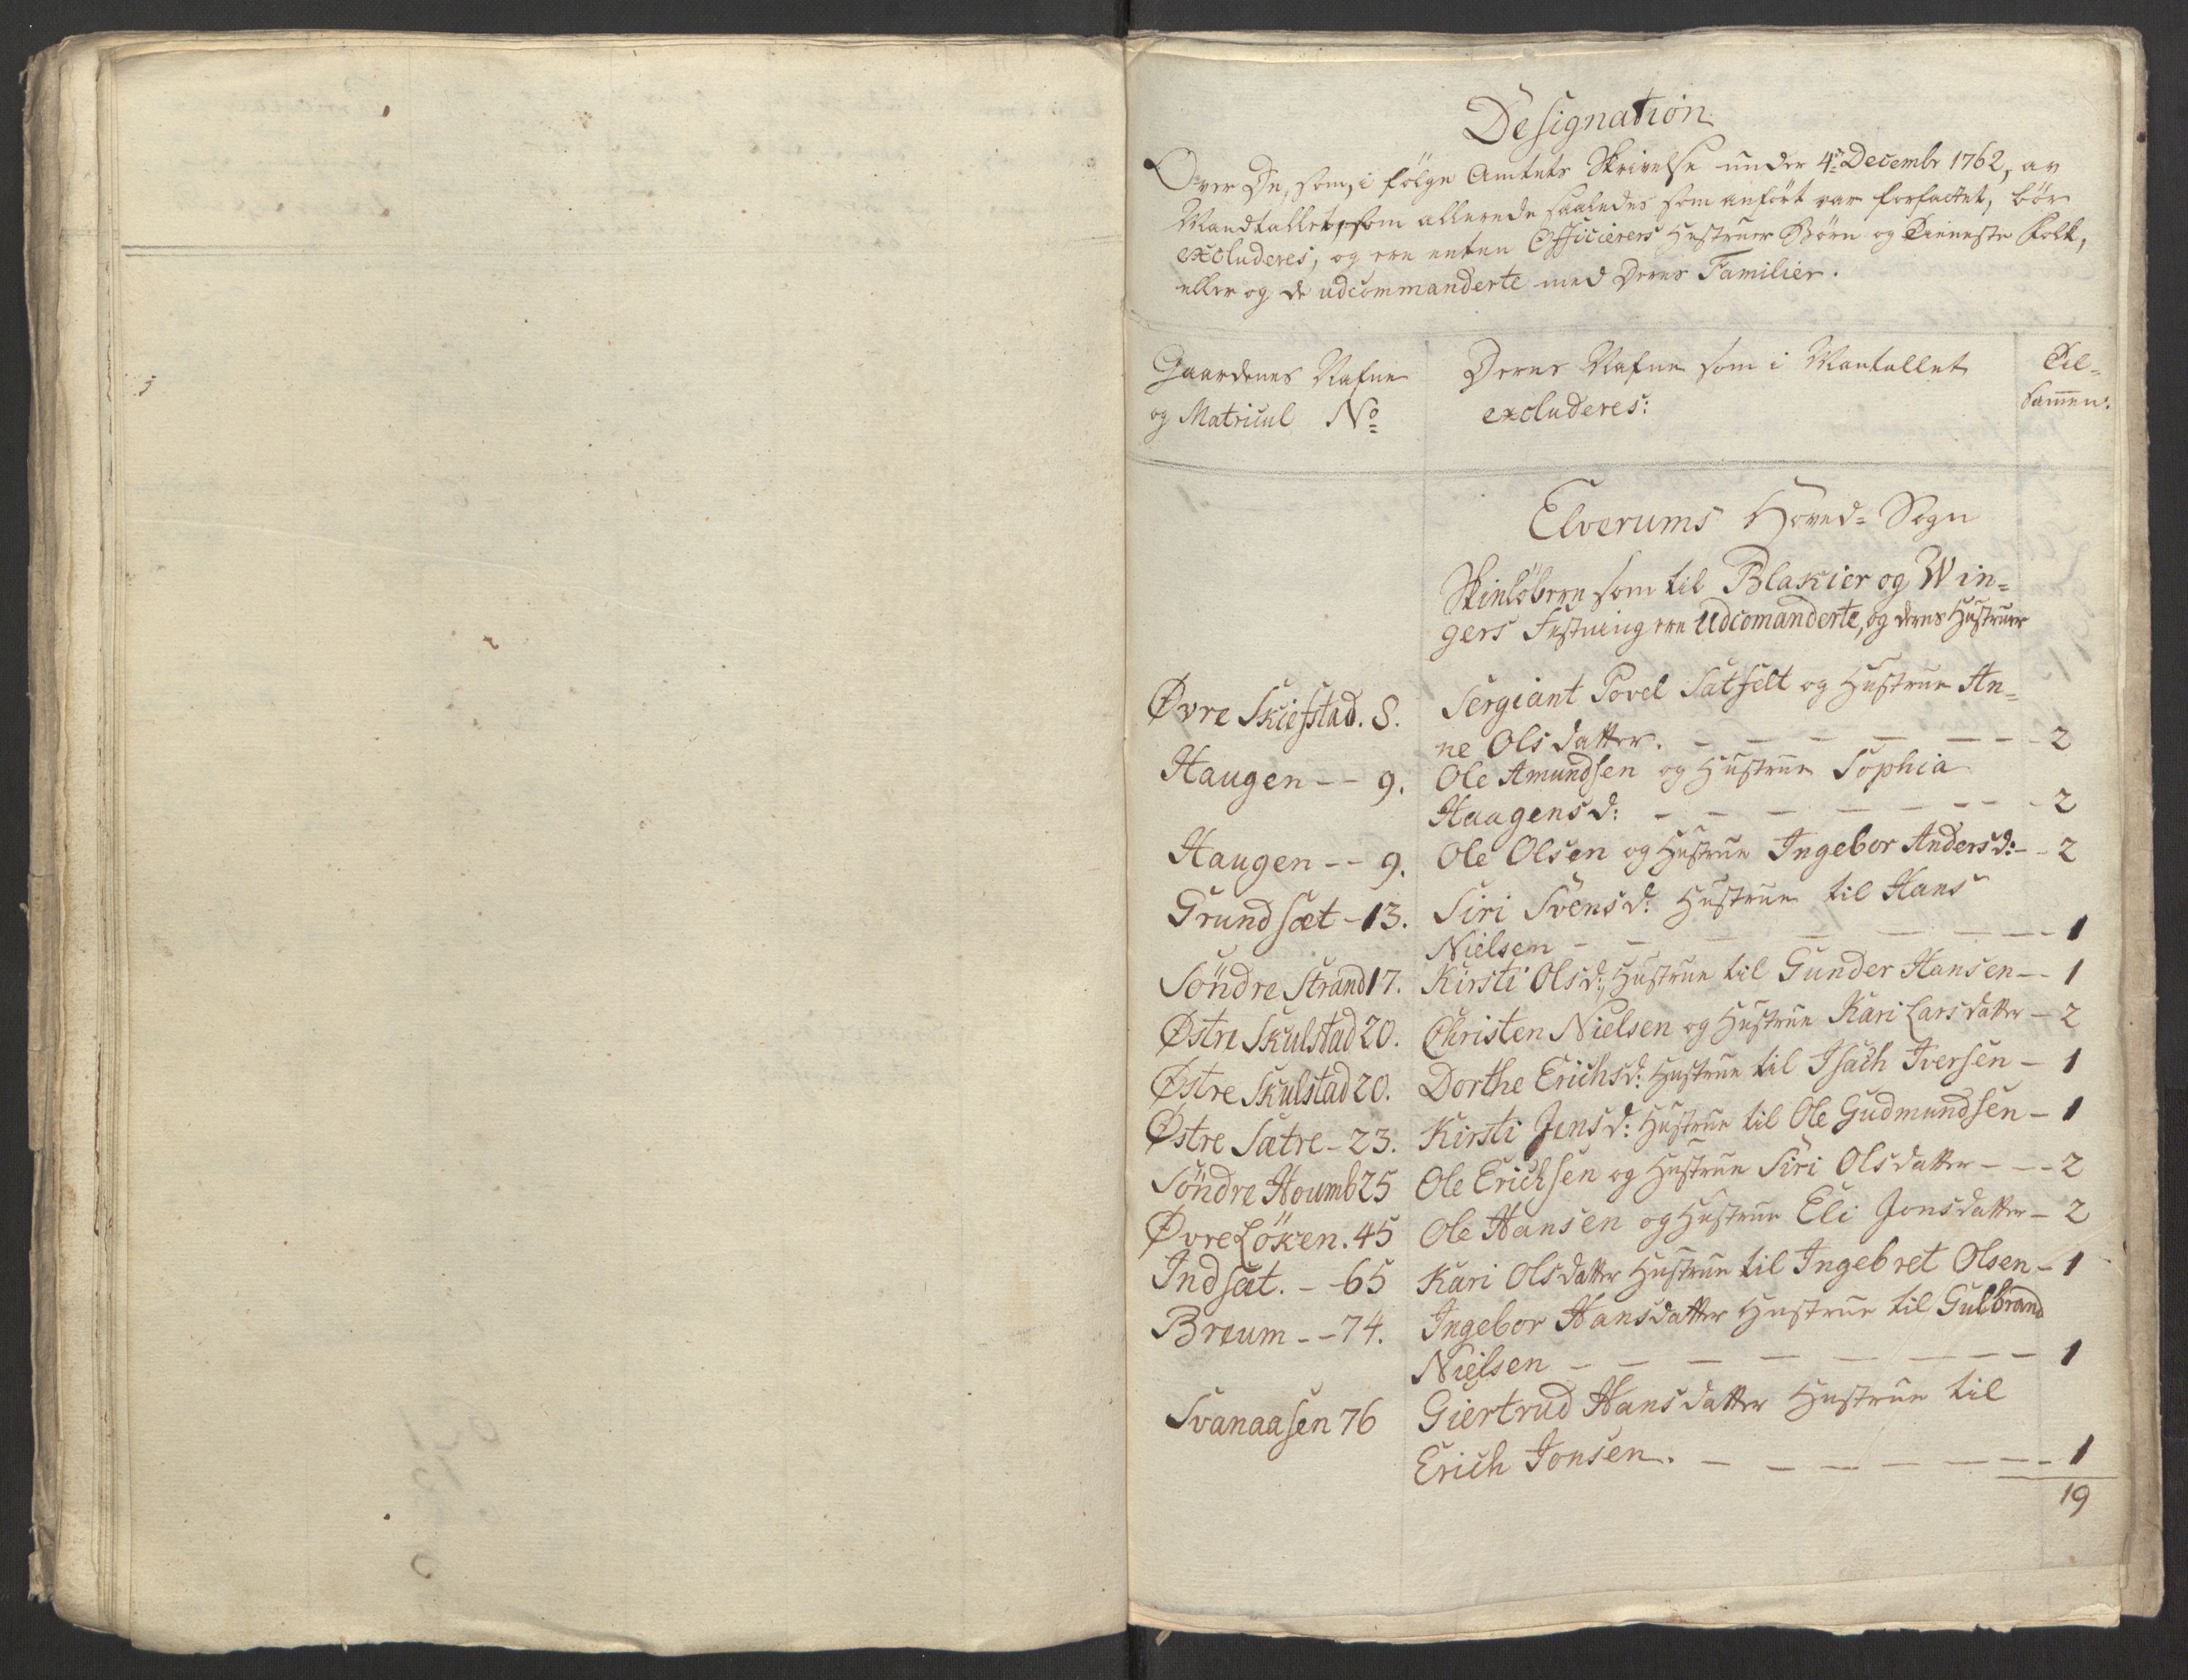 Designation
Over De, som, i følge Amtets Skrivelse under 4de Decembr 1762, av
Mandtallet, som allerede saaledes som anført var forfattet, bør
excluderes, og ere enten Officierers Hustruer Börn og Tieneste Folk,
eller og de udcommanderte med Deres Familier.
Gaardenes Nafne
og Matricul No
Deres Nafne som i Mantallet
excluderes:
Til-
sam̅en:
Elverums Hoved-Sogn
Skiløbere som til Blakier og Win-
gers Festning ere Udcomanderte, og deres Hustruer
Øvre Skiefstad. 8. Sergiant Povel Satfelt og Hustrue An-
ne Olsdatter. - - - - - - - 2
Haugen - - 9. Ole Amundsen og Hustrue Sophia
Haagensd: - - - - - - - - 2
Haugen - - 9. Ole Olsen og Hustrue Ingebor Andersd: - - 2
Grundsæt - 13. Siri Svensd: Hustrue til Hans
Nielsen - - - - - - - - 1
Söndre Strand 17. Kirsti Olsd: Hustrue til Gunder Hansen - - 1
Østre Skulstad 20. Christen Nielsen og Hustrue Kari Larsdatter - 2
Østre Skulstad 20. Dorthe Erichsd: Hustrue til Isach Iversen - 1
Østre Sætre - 23. Kirsti Jensd: Hustrue til Ole Gudmundsen - 1
Söndre Houmb 25 Ole Erichsen og Hustrue Siri Olsdatter - - - 2
Øvre Löken. 45 Ole Hansen og Hustrue Eli Jonsdatter - 2
Indsæt. - - 65 Kari Olsdatter Hustrue til Ingebret Olsen - 1
Breum - - 74. Ingebor Hansdatter Hustrue til Gulbrand
Nielsen - - - - - - - - 1
Svanaasen 76 Giertrud Hansdatter Hustrue til
Erich Jonsen. - - - - - - - - 1
19